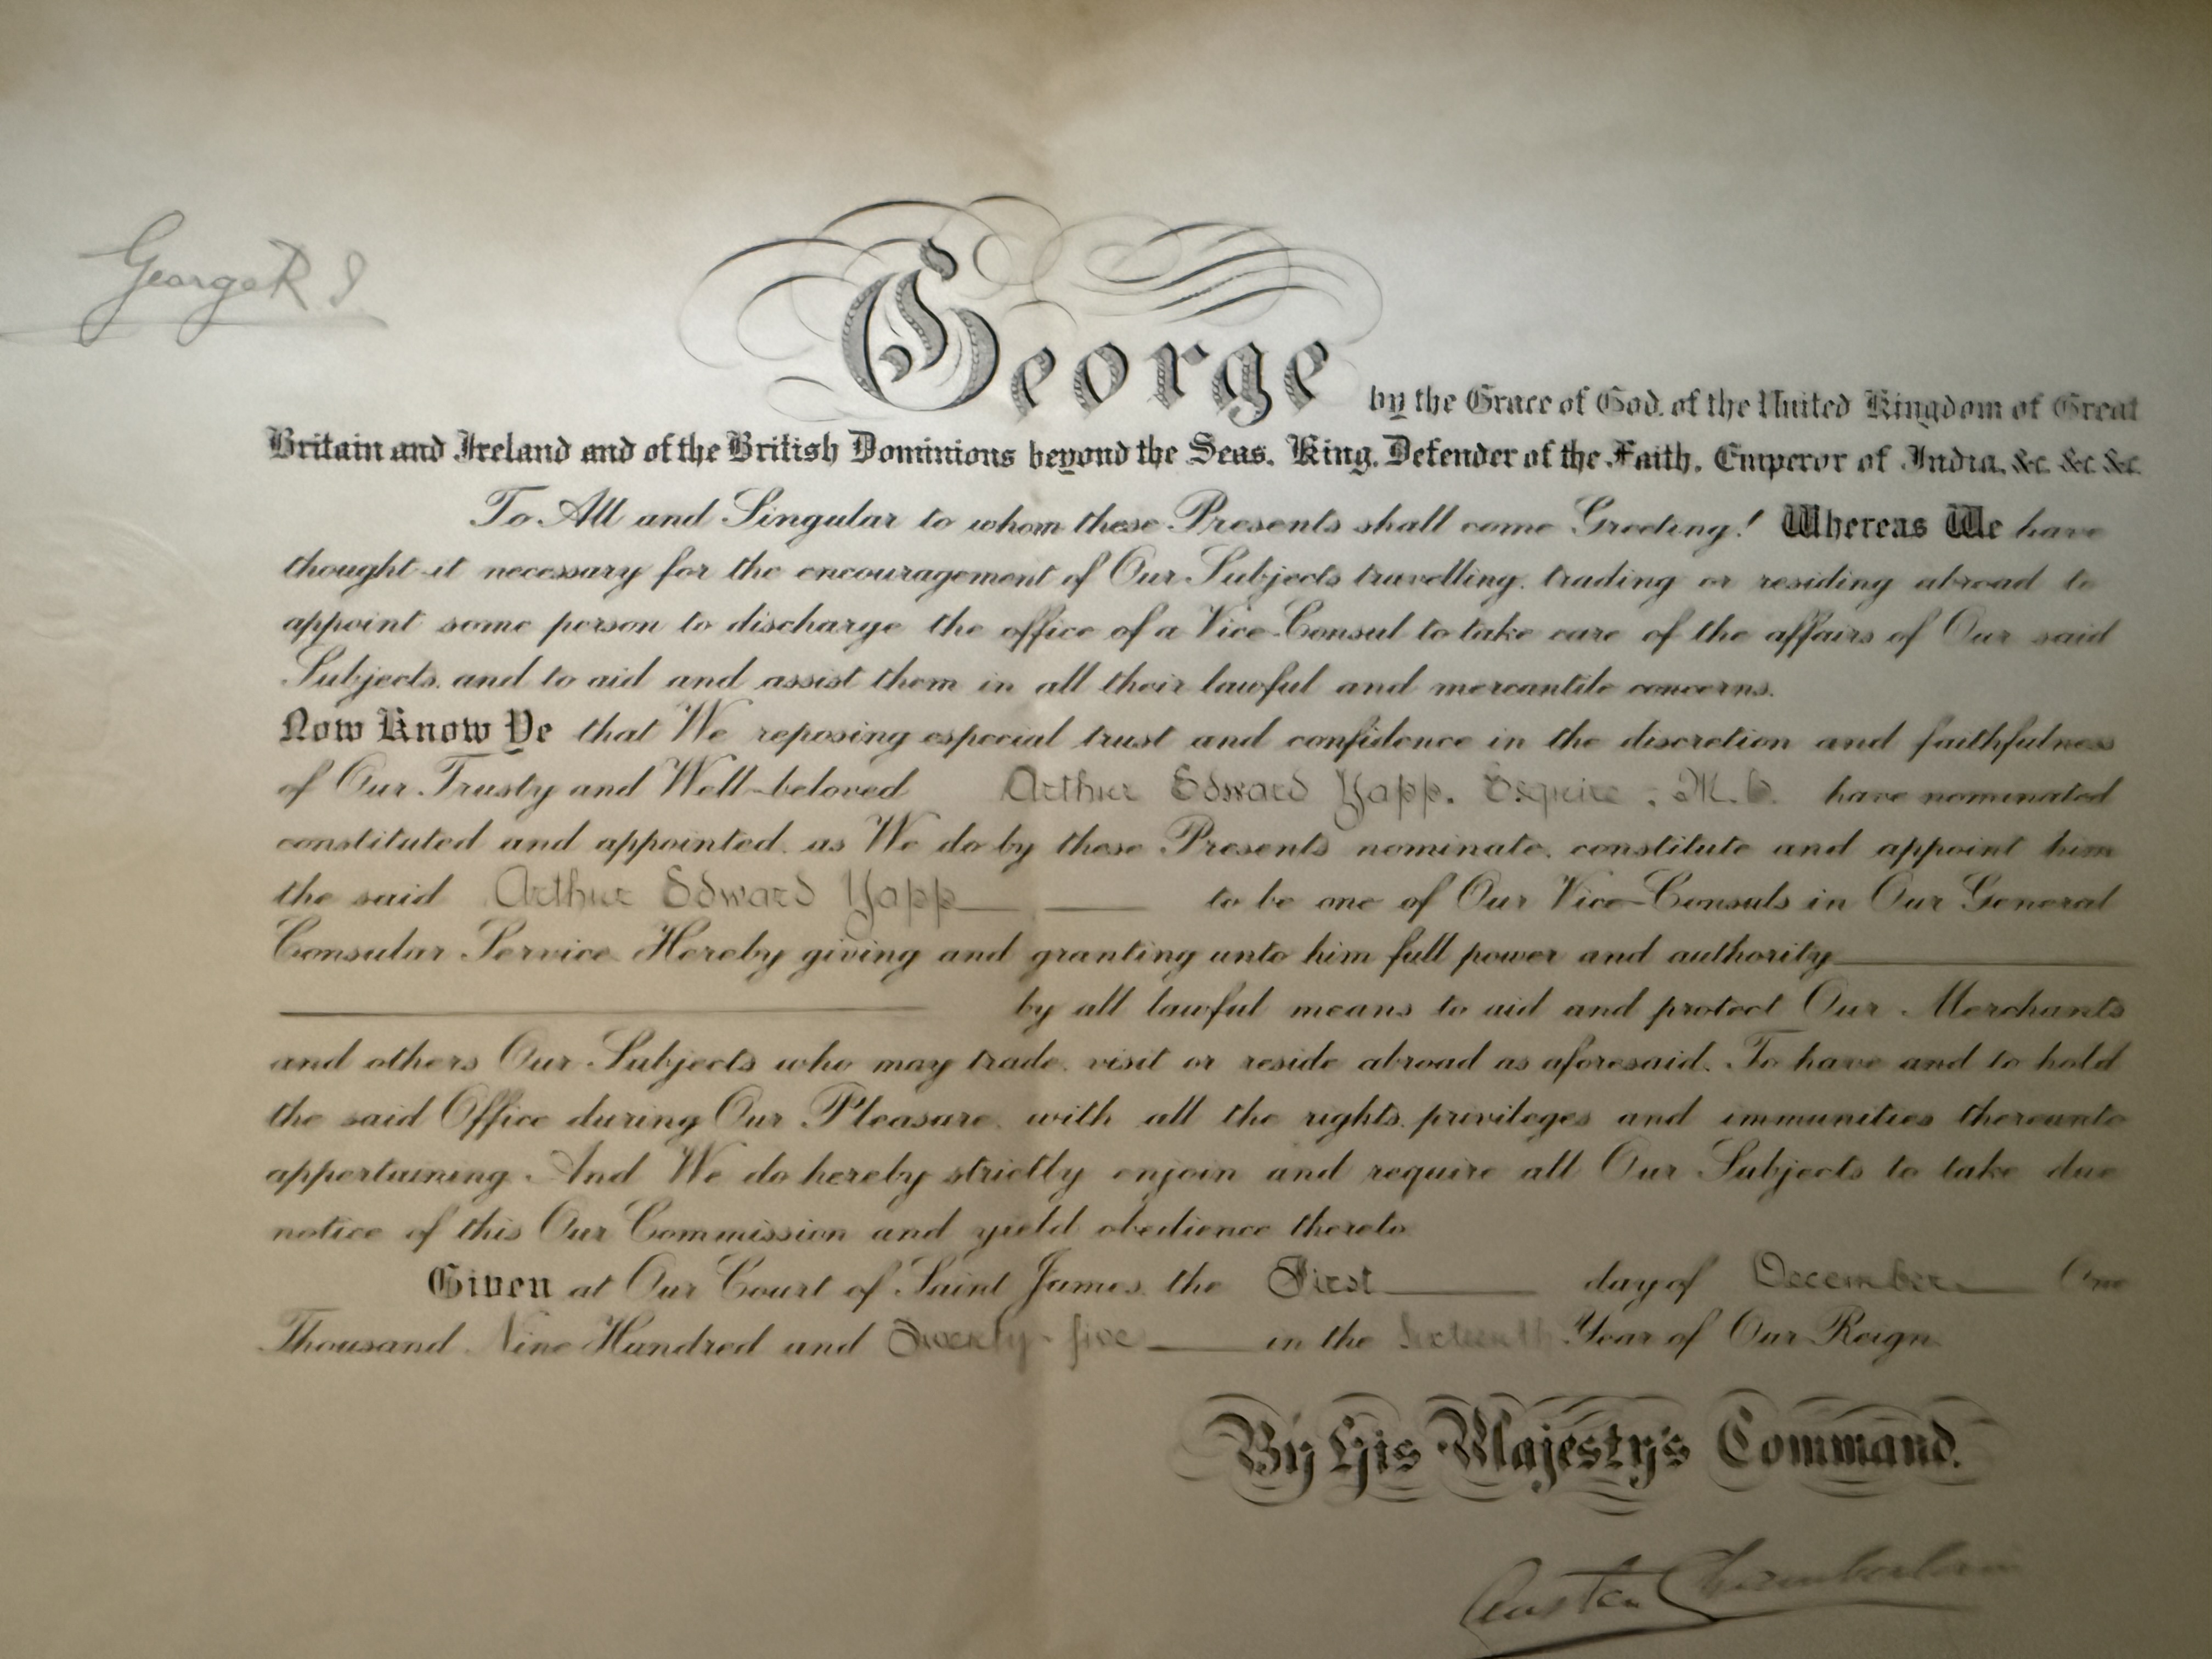 George R I
George by the Grace of God, of the United Kingdom of Great
Britain and Ireland and of the British Dominions beyond the Seas, King, Defender of the Faith, Emperor of India, &c. &c. &c.
To All and Singular to whom these Presents shall come Greeting! Whereas We have
thought it necessary for the encouragement of Our Subjects travelling, trading or residing abroad to
appoint some person to discharge the office of a Vice-Consul to take care of the affairs of Our said
Subjects, and to aid and assist them in all their lawful and mercantile concerns.
Now Know Ye that We reposing especial trust and confidence in the discretion and faithfulness
of Our Trusty and Well-beloved Arthur Edward Yapp, Esquire, M.C. have nominated
constituted and appointed, as We do by these Presents nominate, constitute and appoint him
the said Arthur Edward Yapp to be one of Our Vice-Consuls in Our General
Consular Service Hereby giving and granting unto him full power and authority
by all lawful means to aid and protect Our Merchants
and others Our Subjects who may trade, visit or reside abroad as aforesaid. To have and to hold
the said Office during Our Pleasure, with all the rights, privileges and immunities thereunto
appertaining. And We do hereby strictly enjoin and require all Our Subjects to take due
notice of this Our Commission and yield obedience thereto.
Given at Our Court of Saint James, the First day of December One
Thousand Nine Hundred and Twenty-five in the Sixteenth Year of Our Reign.
By His Majesty's Command.
Austen Chamberlain